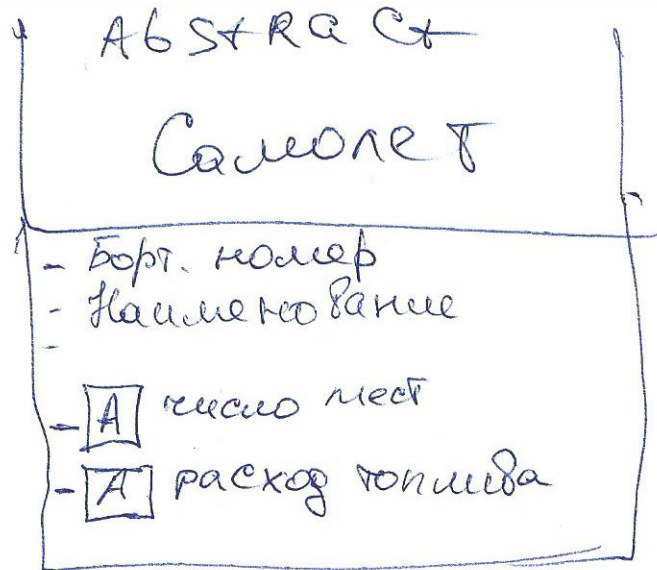 AbstRaCt
Самолет
- Борт. номер
- Наименование
-
- A число мест
- A расход топлива